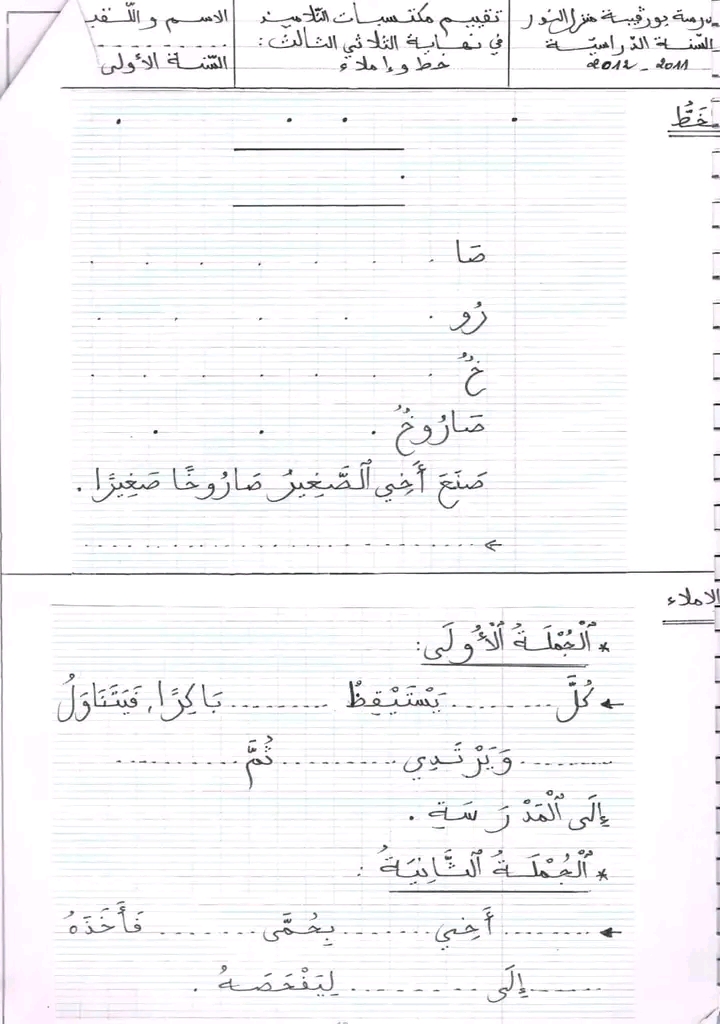 مدرسة بورقيبة منزل النور
السّنة الدّراسيّة
2011 - 2012
تقييم مكتسبات التّلاميذ
في نهاية الثلاثي الثالث :
خط وإملاء
الاسم واللّقب
السّنة الأولى
خَطٌّ
صَا
رُو
خٌ
صَارُوخٌ
صَنَعَ أَخِي ٱلصَّغِيرُ صَارُوخًا صَغِيرًا .
الاملاء
* ٱلْجُمْلَةُ ٱلْأُولَى :
كُلَّ ......... يَسْتَيْقِظُ ......... بَاكِرًا، فَيَتَنَاوَلُ
......... وَيَرْتَدِي ......... ثُمَّ .........
إِلَى ٱلْمَدْرَسَةِ .
* ٱلْجُمْلَةُ ٱلثَّانِيَةُ :
......... أَخِي ......... بِحُمَّى ......... فَأَخَذَهُ
......... إِلَى ......... لِيَفْحَصَهُ .